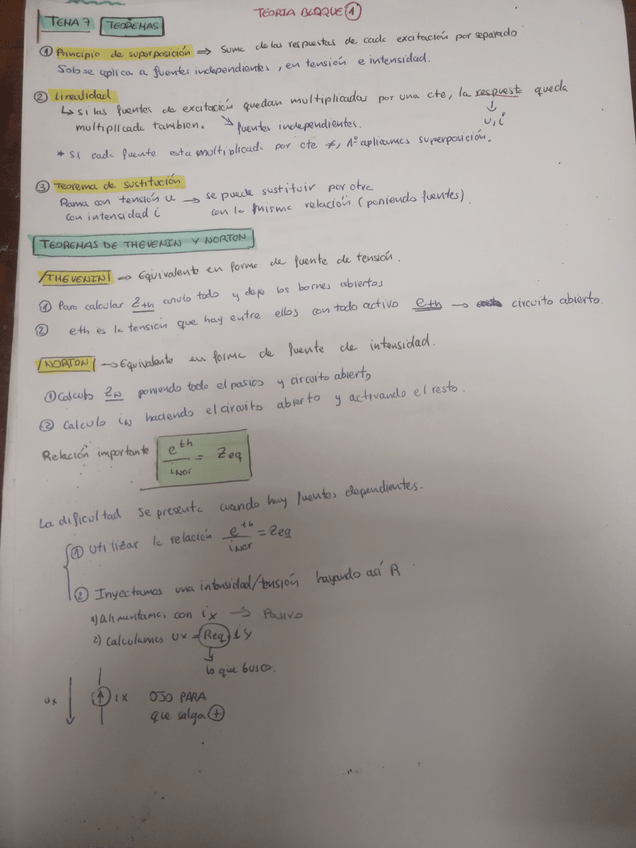 TEORIA BLOQUE 1
TEMA 7 TEOREMAS
① Principio de superposición => Suma de las respuestas de cada excitación por separado
Solo se aplica a fuentes independientes, en tensión e intensidad.
② Linealidad
↳ si las fuentes de excitación quedan multiplicadas por una cte, la respuesta queda
multiplicada tambien. ↘ fuentes independientes. ↓ u, i
* Si cada fuente esta multiplicada por cte ≠, 1º aplicamos superposición.
③ Teorema de sustitución
Rama con tensión u → se puede sustituir por otra
con intensidad i con la misma relación (poniendo fuentes)
TEOREMAS DE THEVENIN Y NORTON
/THEVENIN/ → Equivalente en forma de fuente de tensión.
① Para calcular Zth anulo todo y dejo los bornes abiertos
② eth es la tensión que hay entre ellos con todo activo eth → circuito abierto.
/NORTON/ → Equivalente en forma de fuente de intensidad.
① Calculo ZN poniendo todo el pasivo y circuito abierto
② Calculo iN haciendo el circuito abierto y activando el resto.
Relación importante eth/iNor = Zeq
La dificultad se presenta cuando hay fuentes dependientes.
① Utilizar la relación eth/iNor = Zeq
② Inyectamos una intensidad/tensión hayando así R
1) Alimentamos con ix → Pasivo
2) Calculamos ux = Req ix
↓
lo que busco.
ux ↓ ↑ ix OJO PARA
que salga +